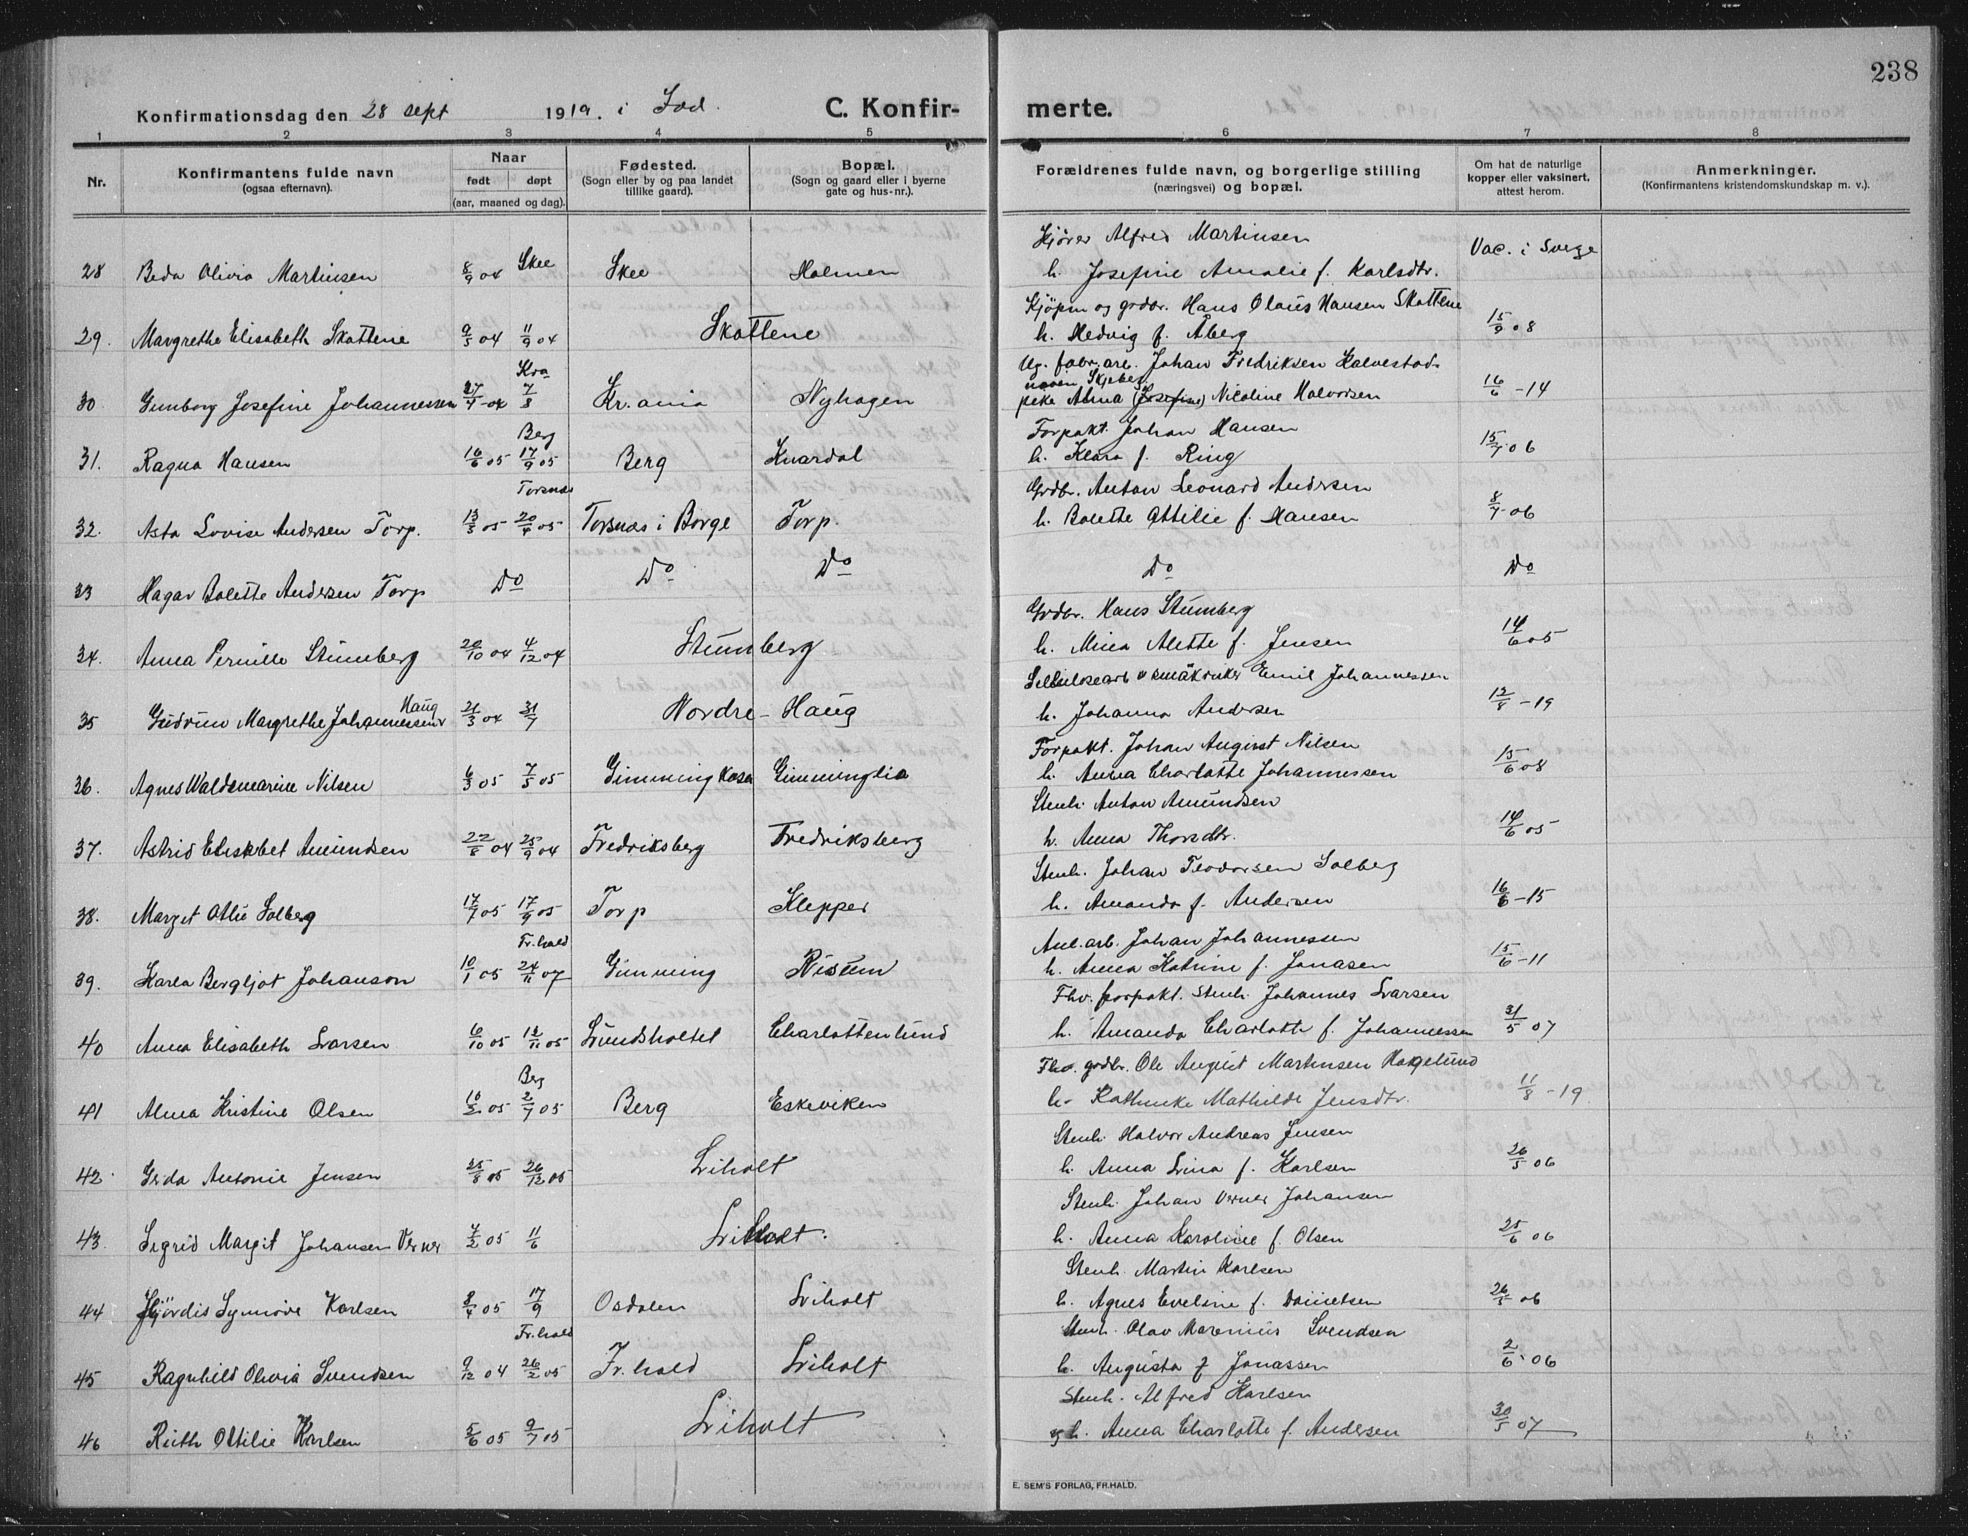 238
Konfirmationsdag den 28 sept 1919. i Idd. C. Konfir- merte.
1 2 3 4 5 6 7 8
Nr. Konfirmantens fulde navn (ogsaa efternavn). Naar født døpt (aar, maaned og dag). Fødested. (Sogn eller by og paa landet tillike gaard). Bopæl. (Sogn og gaard eller i byerne gate og hus-nr.). Forældrenes fulde navn, og borgerlige stilling (næringsvei) og bopæl. Om hat de naturlige kopper eller vaksinert, attest herom. Anmerkninger. (Konfirmantens kristendomskundskap m. v.).
Kjører Alfred Martinsen
28 Beda Olivia Martinsen 8/9 04 Skee Skee Holmen h. Josefine Amalie f. Karlsdtr. Vac. i Sverge
Kjøpm og grdbr. Hans Olaus Hansen Skottene
29. Margrethe Elisabeth Skottene 9/5 04 11/9 04 Skottene h. Hedvig f. Åberg 15/9 08
Kra Ug. fabr. arb. Johan Fredriksen
30 Gunborg Josefine Johannessen 27/4 04 7/8 Kr.ania Nyhagen peke Alma (Josefine) Nicoline Halvorsen 16/6 - 14
Berg Forpakt. Johan Hansen
31. Ragna Hansen 16/6 05 17/9 05 Berg Knardal h. Klara f. Ring 15/7 06
Torsnæs Grdbr. Anton Leonard Andersen
32. Asta Lovise Andersen Torp. 13/3 05 20/4 05 Torsnæs i Borge Torp. h. Bolette Ottilie f. Hansen 8/7 06
33 Hagar Bolette Andersen Torp Do Do Do Do Do
Grdbr. Hans Stumberg
34. Anna Pernille Stumberg 20/10 04 4/12 04 Stumberg h. Mina Alette f. Jensen 14/6 05
Cellulosearb & småbruker Emil Johannessen
35 Gudrun Margrethe Johannessen Haug 21/3 04 31/7 Nordre - Haug h. Johanna Andersen 12/8 - 19
Forpakt. Johan August Nilsen
36. Agnes Waldemarine Nilsen 6/3 05 7/5 05 Gimmingkasa Gimminglia h. Anna Charlotte Johannessen 15/6 08
Stenh. Anton Amundsen
37. Astrid Elisabet Amundsen 22/8 04 25/9 04 Fredriksberg Fredriksberg h. Anna Thorsdtr. 14/6 05
Stenh. Johan Teodorsen Solberg
38. Marget Otlie Solberg 17/7 05 17/9 05 Torp Klepper h. Amanda f. Andersen 16/6 - 15
Fr.hald Anl. arb. Johan Johannessen
39. Karla Bergljot Johanson 10/1 05 24/11 07 Gimming Risum h. Anna Katrine f. Jonasen 15/6 - 11
Fhv. forpakt. Stenh. Johannes Larsen
40 Anna Elisabeth Larsen 6/10 05 12/11 05 Lundsholtet Charlottenlund h. Amanda Charlotte f. Johannessen 31/5 07
Berg Fhv. grdbr. Ole August Martinsen Hagelund
41 Alma Kristine Olsen 10/2 05 2/7 05 Berg Eskeviken h. Kathinke Mathilde Jensdtr. 11/8 - 19
Stenh. Halvor Andreas Jensen
42 Gerda Antonie Jensen 25/8 05 26/12 05 Liholt h. Anna Lina f. Karlsen 26/5 06
Stenh. Johan Verner Johansen
43. Sigrid Margit Johansen Verner 7/2 05 11/6 Liholt. h. Anna Karoline f. Olsen 25/6 06
Stenh. Martin Karlsen
44 Hjørdis Synnøve Karlsen 8/4 05 17/9 Osdalen Liholt h. Agnes Eveline f. Danielsen 26/5 06
Fr.hald Stenh. Olav Marenius Svendsen
45 Ragnhild Olivia Svendsen 9/12 04 26/2 05 Fr.hald Liholt h. Augusta f Jonassen 2/6 06
Stenh. Alfred Karlsen
46 Ruth Ottilie Karlsen 5/6 05 9/7 05 Liholt h. Anna Charlotte f. Andersen 30/5 07
E. SEM'S FORLAG, FR.HALD.